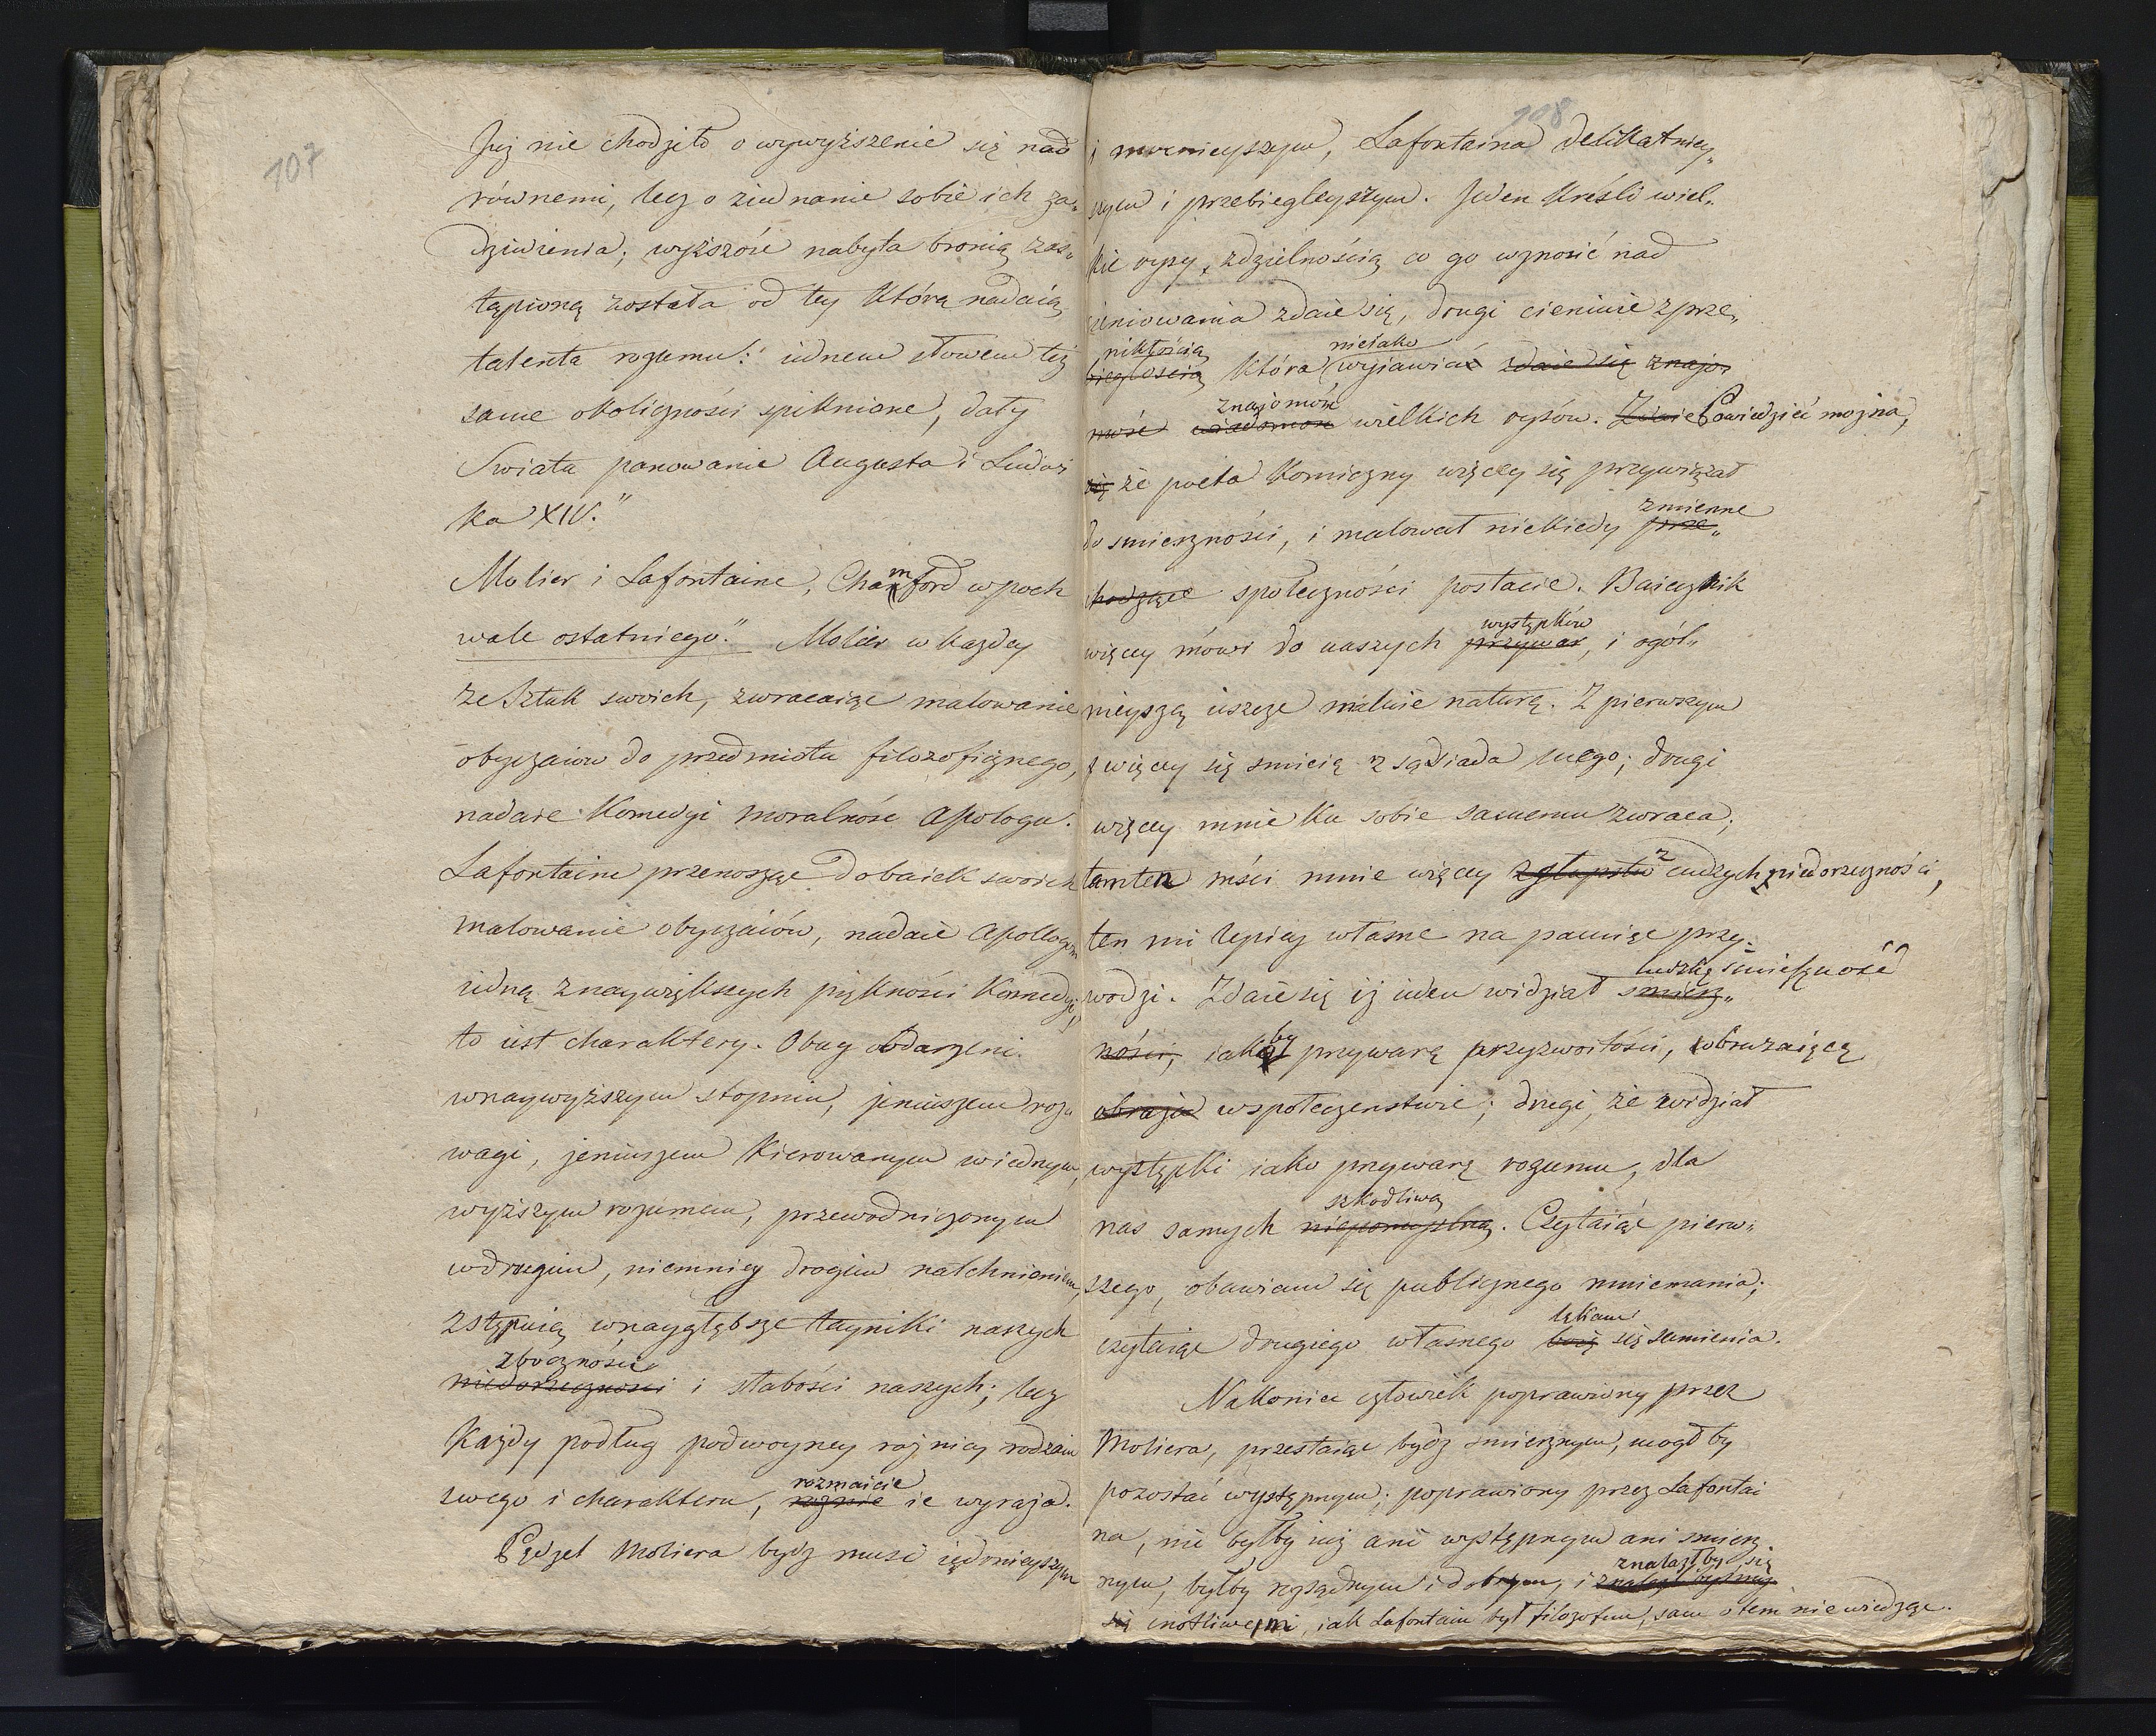 107
Juz nie chodziło o wywyższenie się nad
równemi, lecz o ziednanie sobie ich za„
dziwienia; wyższość nabyta bronią zas„
tąpioną została od tey którą nadaią
talenta rozumu: iednem słowem też
same okoliczności spiknione, dały
Swiatu panowanie Augusta i Ludwi
ka XIV."
Molier i Lafontaine, Chamford w poch
wale ostatniego." Molier w każdey
ze Sztuk swoich, zwracaiąc malowanie
obyczaiow do przedmiotu filozoficznego,
nadaie Komedyi moralność Apologu.
Lafontaine przenosząc do baiek swoich
malowanie obyczaiów, nadaie Apologom
iedną z naywiększych piękności Komedyi,
to iest charaktery. Obay obdarzeni
w naywyższym stopniu, jeniuszem roz
wagi, jeniuszem kierowanym w iednym,
wyższym rozumem, przewodniczonym
w drugim, niemniey drogim natchnieniem,
zstępuią w naygłębsze tayniki naszych
zboczności
niedorzeczności i słabości naszych; lecz
Każdy podług podwoyney różnicy rodzaiu
rozmaicie
swego i charakteru, rożnie ie wyraża.
Pędzel Moliera bydź musi iędrnieyszym
108
i mocnieyszym, Lafontaina delikatniey„
szym i przebiegleyszym. Jeden kréśli wiel„
kie rysy, z dzielnością co go wznosić nad
cieniowania zdaie się, drugi cieniuie z prze„
nikłością nieiako
biegłością która wyjawiać zdaie się znajo„
znajomość
mość wiadomość wielkich rysów. Zdaie Powiedzieć można,
się że poeta Komiczny więcey się przywiązał
zmienne
do smieszności, i malował niekiedy prze„
chodzące społeczności postacie. Baieczńik
występków
więcey mówi do naszych przywar, i ogól„
nieyszą ieszcze maluie naturę. Z pierwszym
więcey się smieię z sąsiada mego; drugi
więcey mnie ku sobie samemu zwraca;
tamten mści mnie więcey z głupstw z cudzych niedorzeczności,
ten mi lepiey własne na pamięć przy„
ludzką śmieszność
wodzi. Zdaie się iż ieden widział smiesz„
by
ności, iako przywarę przyzwoitości, obrażaiącą
obrażen w społeczenstwie; drugi, że widział
występki iako przywarę rozumu, dla
szkodliwą
nas samych niepomyslną. Czytaiąc pierw„
szego, obawiam się publicznego mniemania;
lękam
czytaiąc drugiego własnego boię się sumienia.
Nakoniec człowiek poprawiony przez
Moliera, przestaiąc bydź smiesznym, mogł by
pozostać występnym; poprawiony przez Lafontai
na, nie byłby iuż ani występnym ani smiesz„
znalazłby się
nym, byłby rozsądnym i dobrym, i znalezlibysmy
się cnotliwemi, iak Lafontain był filozofem, sam o tem nie wiedząc.